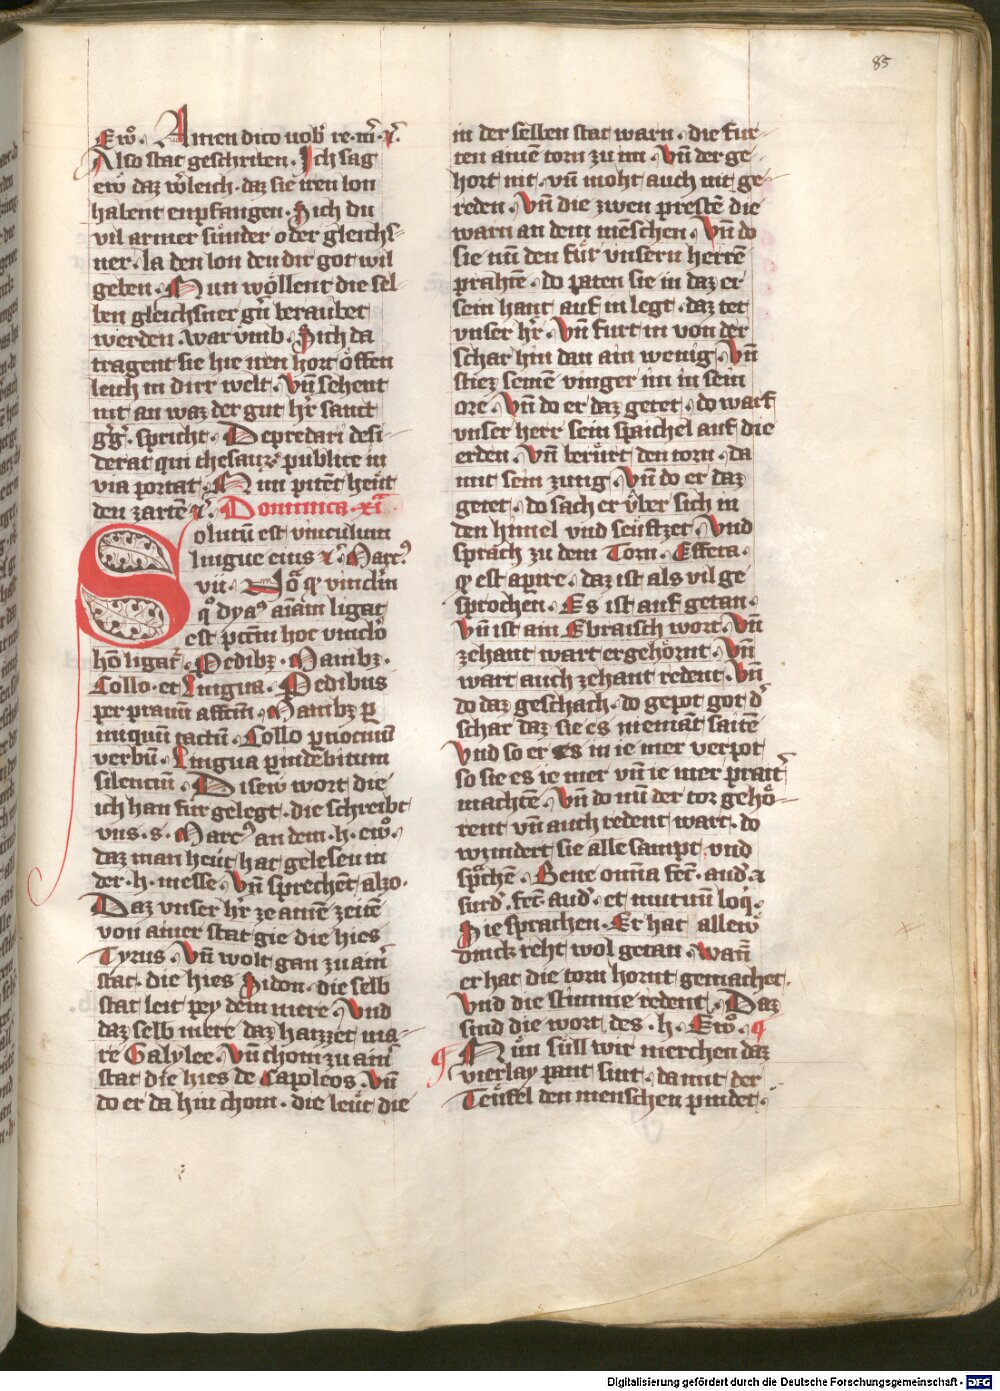 85
Ewͦ. Amen dico vob̄ re. m̄. ⁊c̄.
Also stat geschriben. Ich sag
ew daz w̄leich. daz sie iren lon
habent enpfangen. Sich du
vil armer su̇nder oder gleichs-
ner. la den lon den dir got wil
geben. Nun wöllent die sel-
ben gleichsner gn̄ beraubet
werden. war vmb. Sich da
tragent sie hie iren hort öffen
leich in dirr welt. Vn̄ sehent
nit an waz der gut hr̄ sanct
gr̄ḡ. spricht. Depredari desi-
derat qui thesaur̄ publice in
via portat. Nun pitet heu̇t
den zarten ⁊c̄. Dominica. xiᵃ
Solutū est vinculum
lingue eius ⁊c̄. Marc⁹
vii. Noͣ ꝙ vincl̄m
q̄ dyaᵒ aīam ligat
est pctm̄ hoc vincl̄o
hō ligat᷑. Pedibꝫ. Manibꝫ.
Collo. et Lingua. Pedibus
per prauū affctm̄. Manibꝫ ꝑ
iniquū tactū. Collo ꝑ nociuū
verbū. Lingua ꝑ indebitum
silenciū. Disew wort die
ich han fu̇r gelegt. die schreibt
vns. s. Marc⁹ an dem. h. ewͦ.
daz man heu̇t hat gelesen in
der. h. messe. Vn̄ sprechēt also.
Daz vnser hr̄ ze ainē zeitē
von ainer stat gie die hies
Tyrus. Vn̄ wolt gan zu ainr̄
stat. die hies Sidon. die selb
stat leit pey dem mere. Vnd
daz selb mere daz haizzet ma-
re Galylee. Vn̄ chom zu ainr̄
stat die hies de Capoleos. Vn̄
do er da hin chom. die leu̇t die
in der selben stat warn. die fur-
ten ainē torn zu im. Vn̄ der ge-
hort nit. vn̄ moht auch nit ge-
reden. Vn̄ die zwen prestē die
warn an dem mēschen. Vn̄ do
sie nū den fu̇r vnsern herrē
prahtē. do paten sie in daz er
sein hant auf in legt. daz tet
vnser hr̄. Vn̄ furt in von der
schar hin dan ain wenig. Vn̄
stiez seinē vinger im in sein
ore. Vn̄ do er daz getet. do warf
vnser herr sein spaichel auf die
erden. Vn̄ beru̇rt den torn. da
mit sein zung. Vn̄ do er daz
getet. do sach er u̇ber sich in
den himel vnd seu̇ftzet. Vnd
sprach zu dem Torn. Effeta.
ꝙ est apire. daz ist als vil ge
sprochen. Es ist auf getan.
Vn̄ ist ain Ebraisch wort. Vn̄
zehant wart er gehörnt. Vn̄
wart auch zehant redent. Vn̄
do daz geschach. do gepot got d᷑
schar daz sie es niemāt saitē
Vnd so er es in ie mer verpot
so sie es ie mer vn̄ ie mer prait᷑
machtē. Vn̄ do nū der tor gehö-
rent vn̄ auch redent wart. do
wundert sie alle sampt vnd
sprachē. Bene omnia fec̄. aud᷑. ⁊
surd᷑. fec̄. aud᷑. et mutum loq̄.
Sie sprachen. Er hat allew
dinck reht wol getan. wann̄
er hat die torn hornt gemachet.
Vnd die stumme redent. Daz
sind die wort des. h. Ewͦ. ¶
¶ Nun su̇ll wir merchen daz
vierlay pant sint. da mit der
Teu̇fel den menschen pindet.
Digitalisierung gefördert durch die Deutsche Forschungsgemeinschaft - DFG